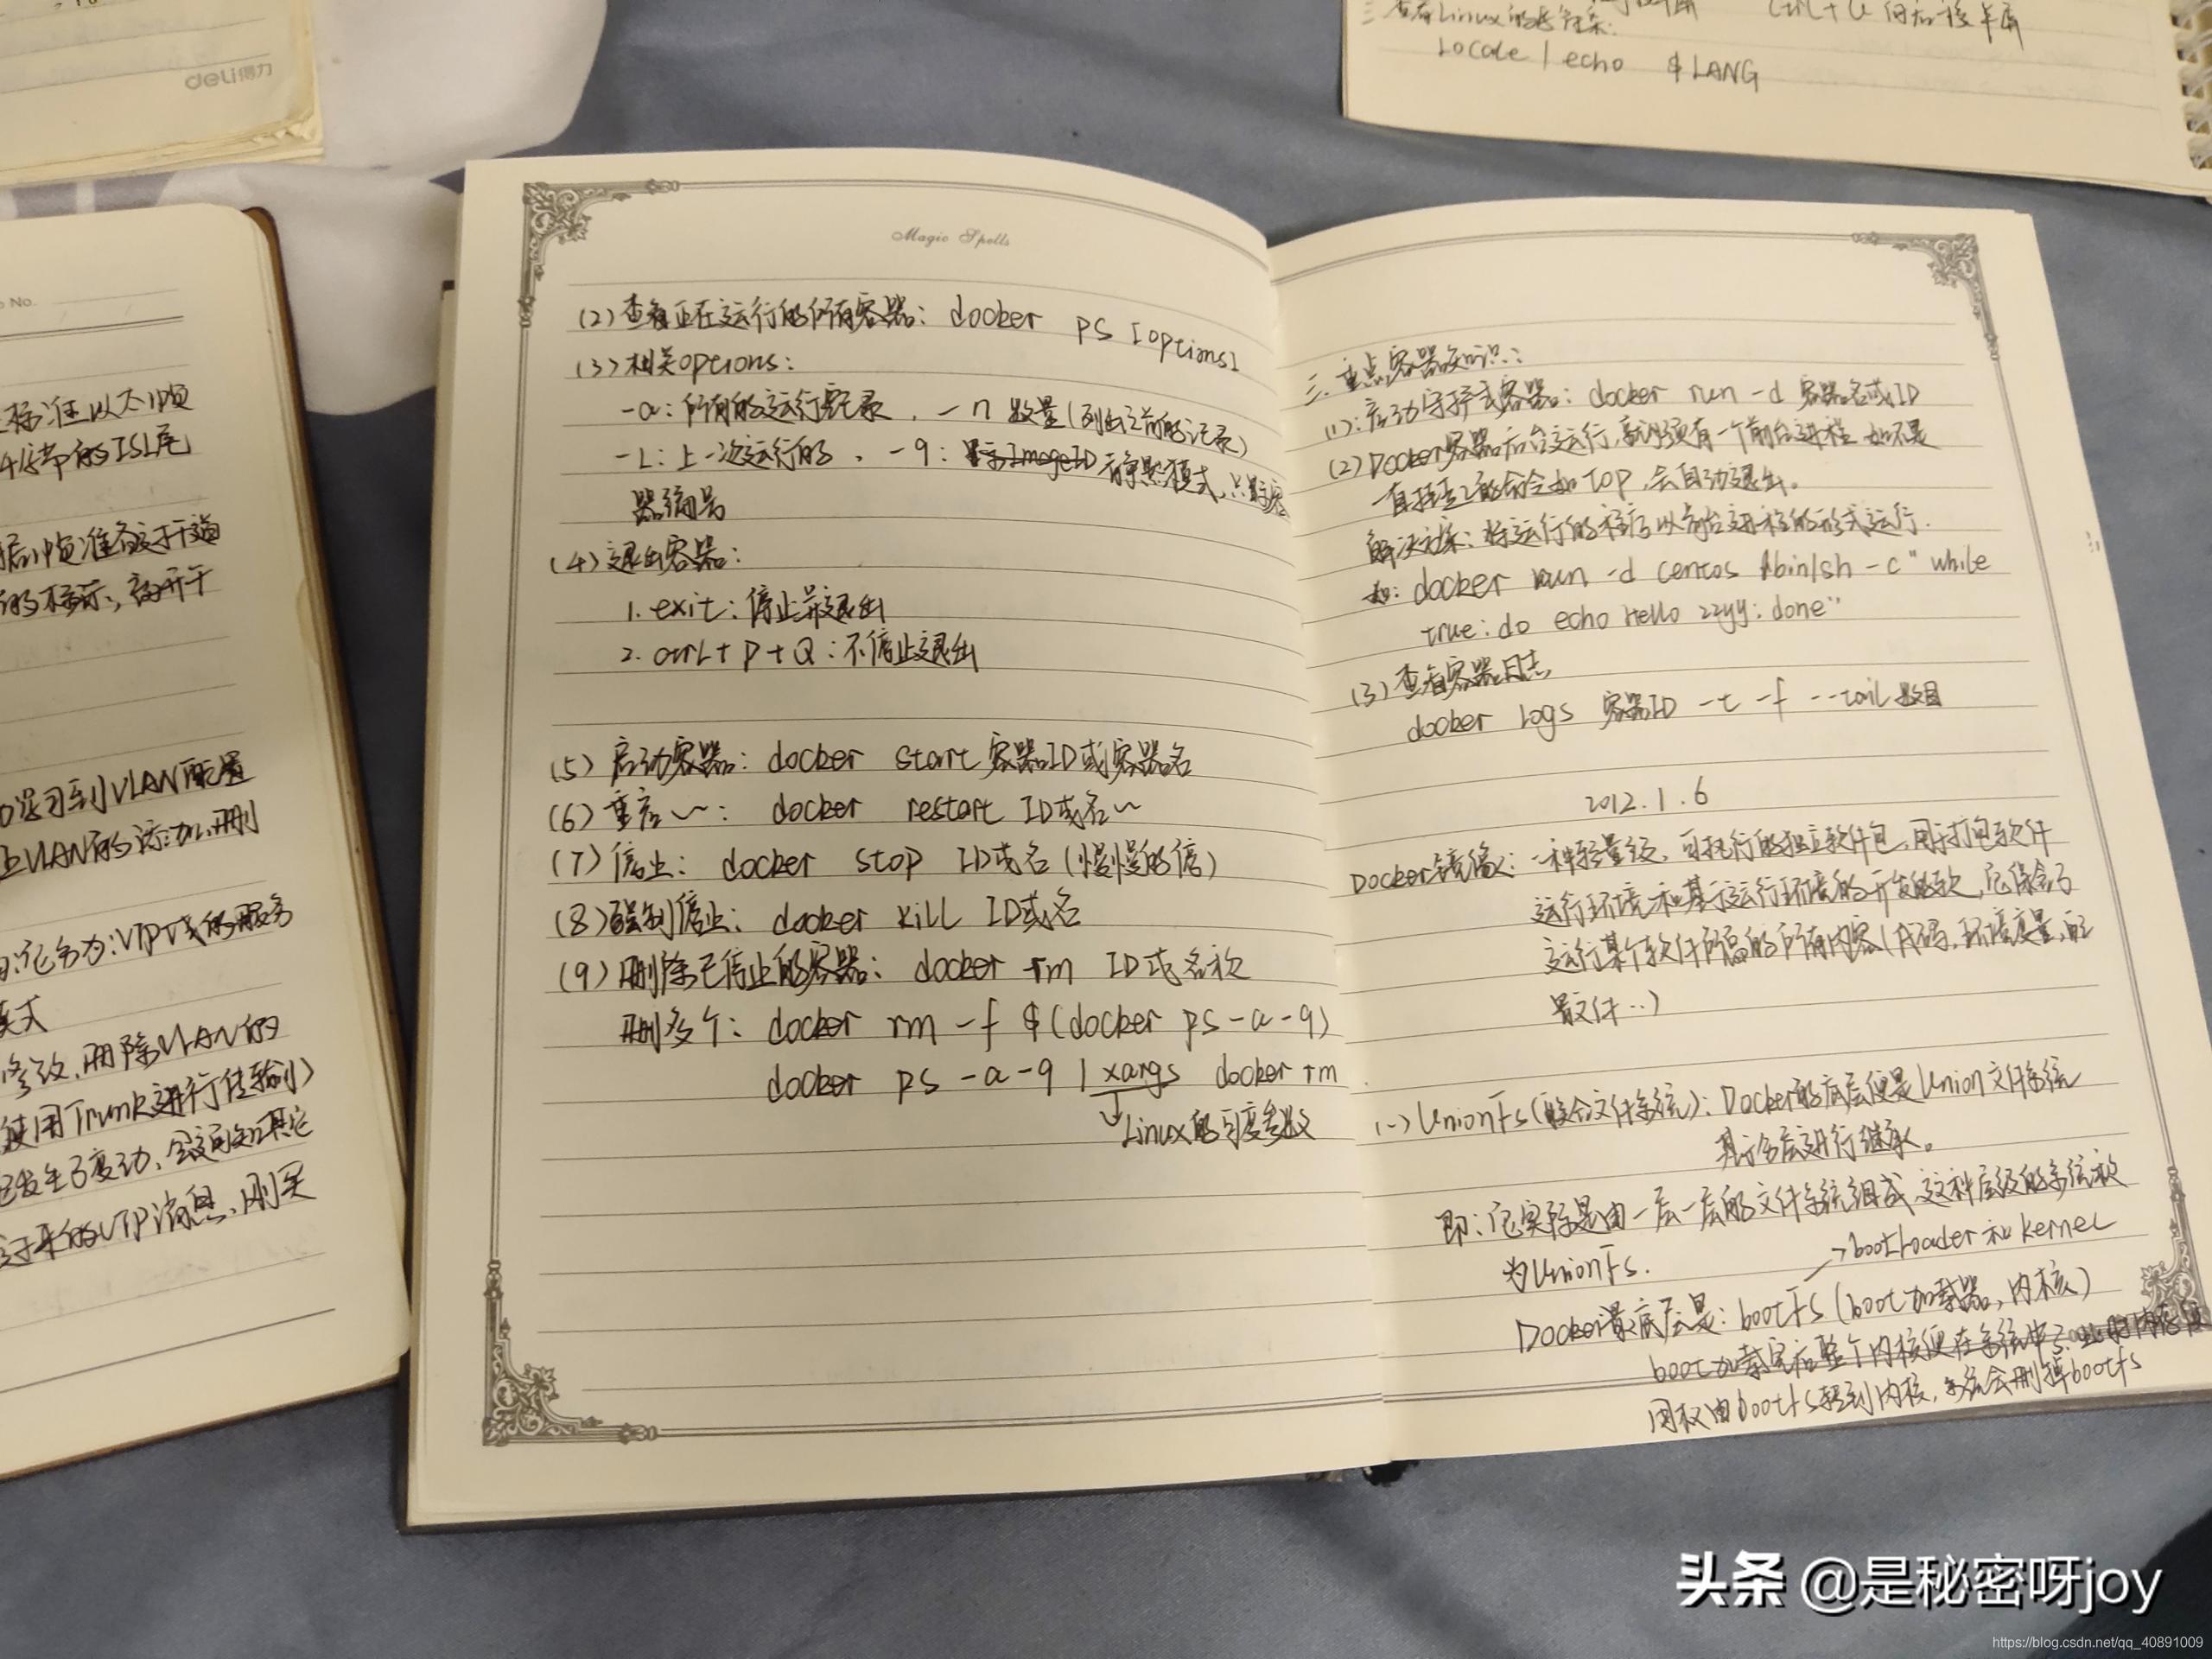 deli得力
o No.
标准以太帧
4字节的ISL尾
帧准备
的标示,离开干
习到VLAN配置
VLAN的添加、删
它分为:VTP域的服务
模式
修改、删除VLAN的
使用Trunk进行传输)
发生了变动、会通知其它
过来的VTP消息、刚买
查看Linux的
Locale | echo $LANG
Magic Spells
(2)查看正在运行的所有容器: docker ps [options]
(3)相关options:
-a:所有的运行记录. -n 数量(列出之前的记录)
-L:上一次运行的. -q: 显示ImageID 静默模式,只显示容
器编号
(4)退出容器:
1. exit:停止并退出
2. ctrl+P+Q:不停止退出
(5)启动容器: docker start 容器ID或容器名
(6)重启~: docker restart ID或名~
(7)停止: docker stop ID或名(慢慢的停)
(8)强制停止: docker kill ID或名
(9)删除已停止的容器: docker rm ID或名称
删多个: docker rm -f $(docker ps -a -q)
docker ps -a -q | xargs docker rm
Linux的可变参数
三.重点容器知识:
(1):启动守护式容器: docker run -d 容器名或ID
(2)Docker容器后台运行,就必须有一个前台进程.如不是
一直挂起的命令如TOP,会自动退出。
解决方案:将运行的程序以前台进程的形式运行.
如: docker run -d centos /bin/sh -c "while
true; do echo Hello zzyy; done"
(3)查看容器日志
docker logs 容器ID -t -f --tail 数目
2012.1.6
Docker镜像:一种轻量级、可执行的独立软件包,用于打包软件
运行环境和基于运行环境的开发的软,它保含了
运行某个软件所需的所有内容(代码,环境变量,配
置文件..)
(一)UnionFs(联合文件系统): Docker的底层便是Union文件系统
其分层进行继承。
即:它实际是由一层一层的文件系统组成,这种层级的系统被
为UnionFs.
→bootLoader和kernel
Docker最底层是: bootFs (boot加载器,内核)
boot加载完后整个内核便在系统中了. 此时内存使
用权由bootfs转到内核,系统会删掉bootfs
头条 @是秘密呀joy
https://blog.csdn.net/qq_40891009